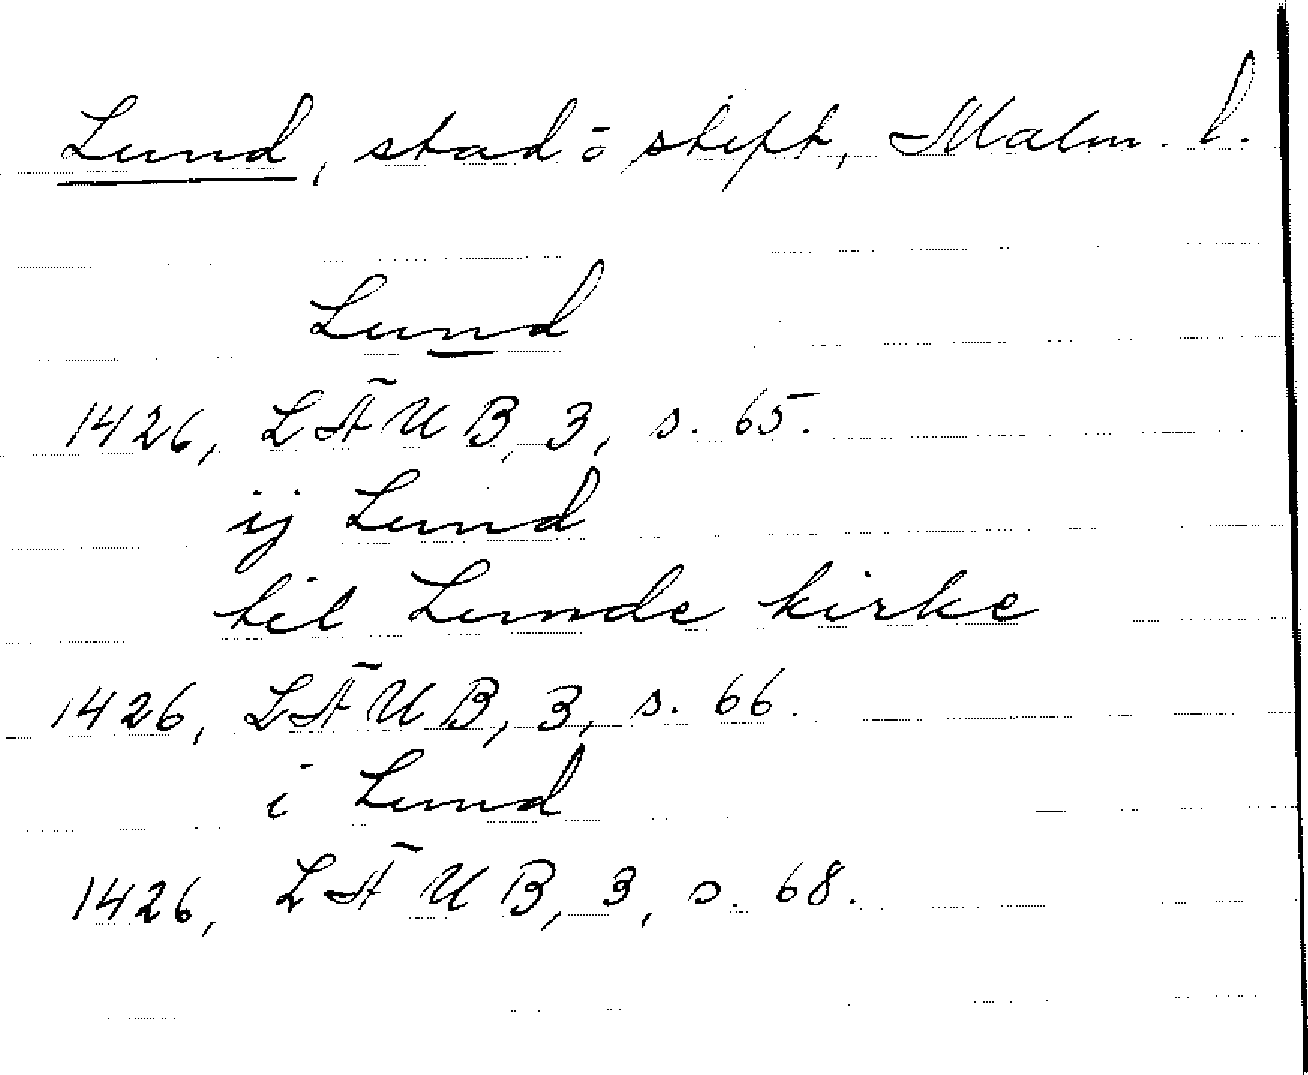 Lund, stad ö stift, Malm. l.
Lund
1426, LÄUB, 3, s. 65.
ij Lund
til Lunde kirke
1426, LÄUB, 3, s. 66.
i Lund
1426, LÄUB, 3, s. 68.